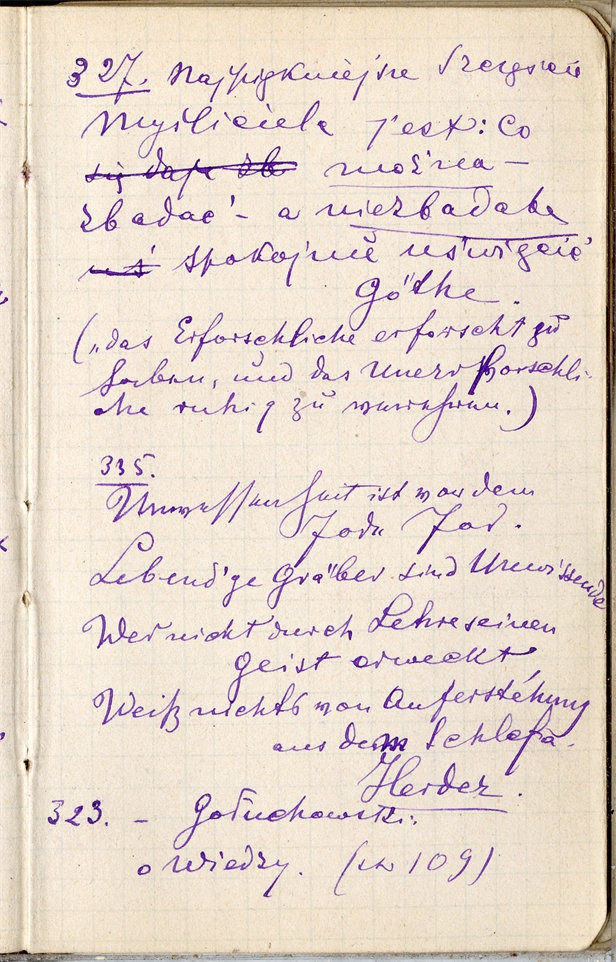 327. Najpiękniejsze szczęście
Myśliciela jest: co
się daje zb możná –
zbadać – a niezbadane
uś spokojnie uświęcić
Göthe.
(„das Erforschliche erforscht zu
haben, und das Unerforschli-
che ruhig zu verehren.)
335.
Unwissenheit ist vor dem
Tode Tod.
Lebend'ge Gräber sind Unwissende
Wer nicht durch Lehre seinen
Geist erweckt,
Weiß nichts von Auferstehung
aus dem Schlafe.
Herder.
323. – Gołuchowski.
o wiedzy. (109)